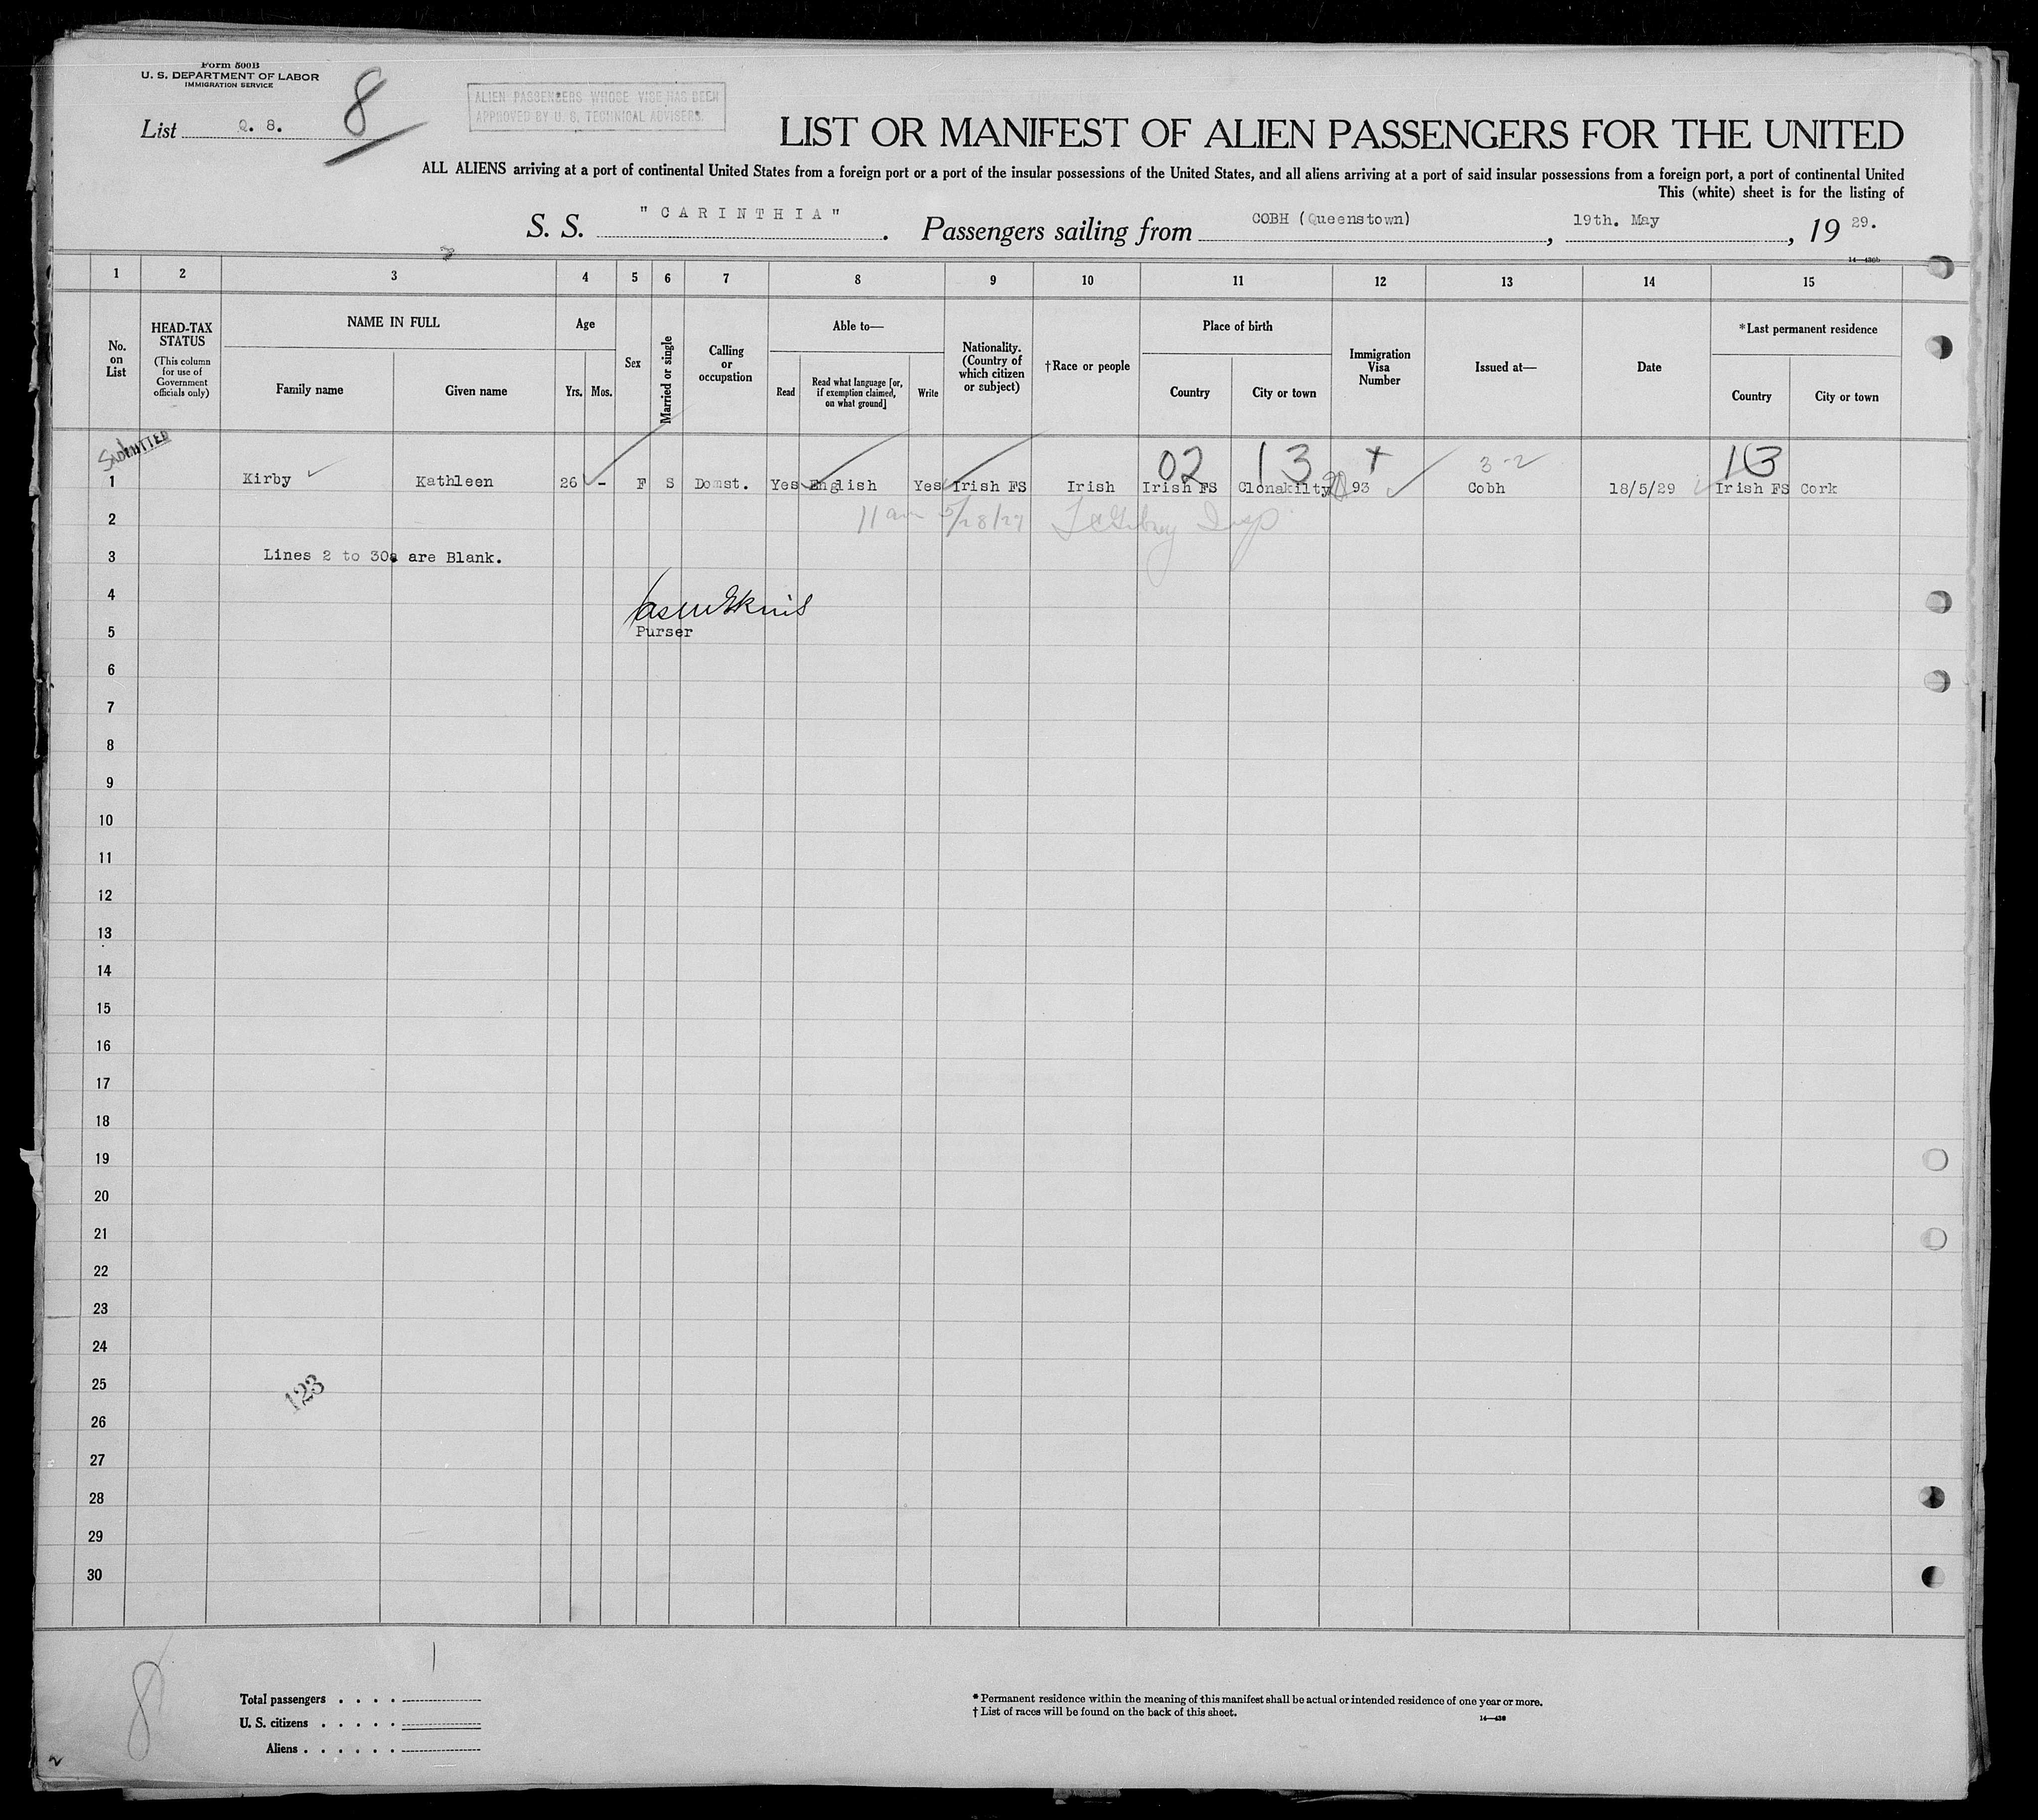 Form 500B
U. S. DEPARTMENT OF LABOR
IMMIGRATION SERVICE
List Q. 8.
8
ALIEN PASSENGERS WHOSE VISE HAS BEEN
APPROVED BY U. S. TECHNICAL ADVISERS.
LIST OR MANIFEST OF ALIEN PASSENGERS FOR THE UNITED
ALL ALIENS arriving at a port of continental United States from a foreign port or a port of the insular possessions of the United States, and all aliens arriving at a port of said insular possessions from a foreign port, a port of continental United
This (white) sheet is for the listing of
S. S. "CARINTHIA". Passengers sailing from COBH (Queenstown), 19th. May, 19 29.
14—430b
1 2 3 4 5 6 7 8 9 10 11 12 13 14 15
No. on List
HEAD-TAX STATUS
(This column for use of Government officials only)
NAME IN FULL
Family name Given name
Age
Yrs. Mos.
Sex
Married or single
Calling or occupation
Able to—
Read
Read what language [or, if exemption claimed, on what ground]
Write
Nationality. (Country of which citizen or subject)
†Race or people
Place of birth
Country City or town
Immigration Visa Number
Issued at—
Date
*Last permanent residence
Country City or town
ADMITTED
02 13 3-2 13
1 Kirby Kathleen 26 - F S Domst. Yes English Yes Irish FS Irish Irish FS Clonakilty 93 Cobh 18/5/29 Irish FS Cork
2 11 am 5/28/29 Insp
3 Lines 2 to 30. are Blank.
4
5 Purser
6
7
8
9
10
11
12
13
14
15
16
17
18
19
20
21
22
23
24
25
123
26
27
28
29
30
8
1
Total passengers
U. S. citizens
Aliens
* Permanent residence within the meaning of this manifest shall be actual or intended residence of one year or more.
† List of races will be found on the back of this sheet.
14—430
2